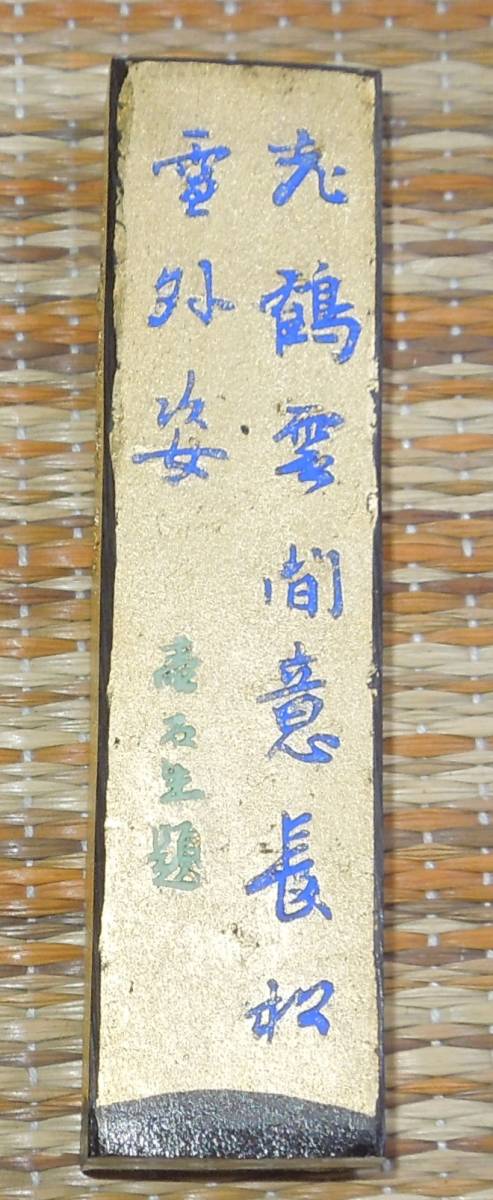 老鶴雲間意長松
雪外姿
石生題